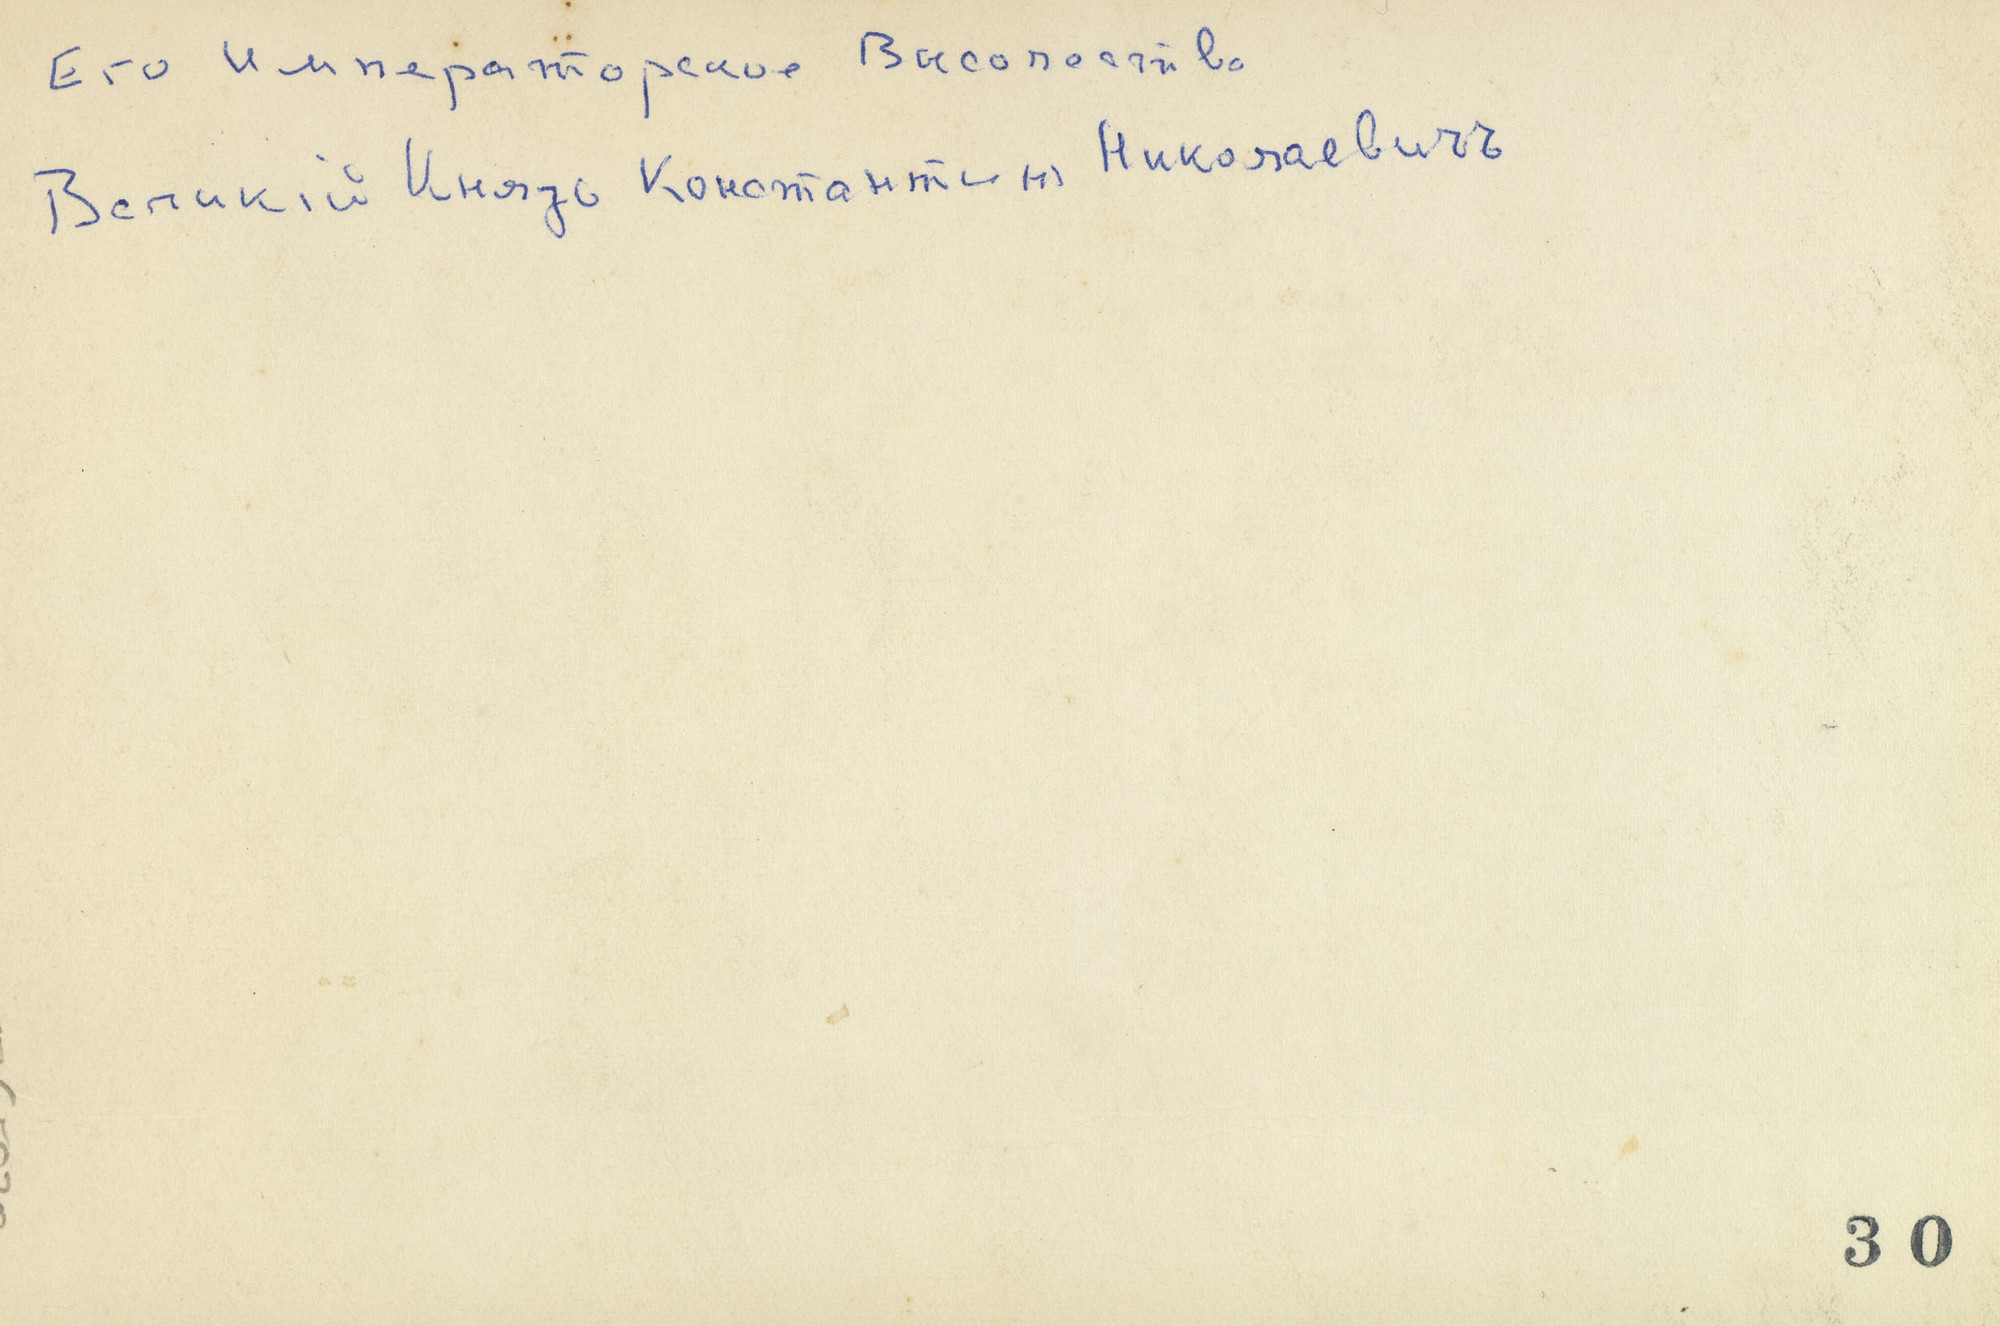 Его Императорское Височество
Великій Князь Константин Николаевичъ
30